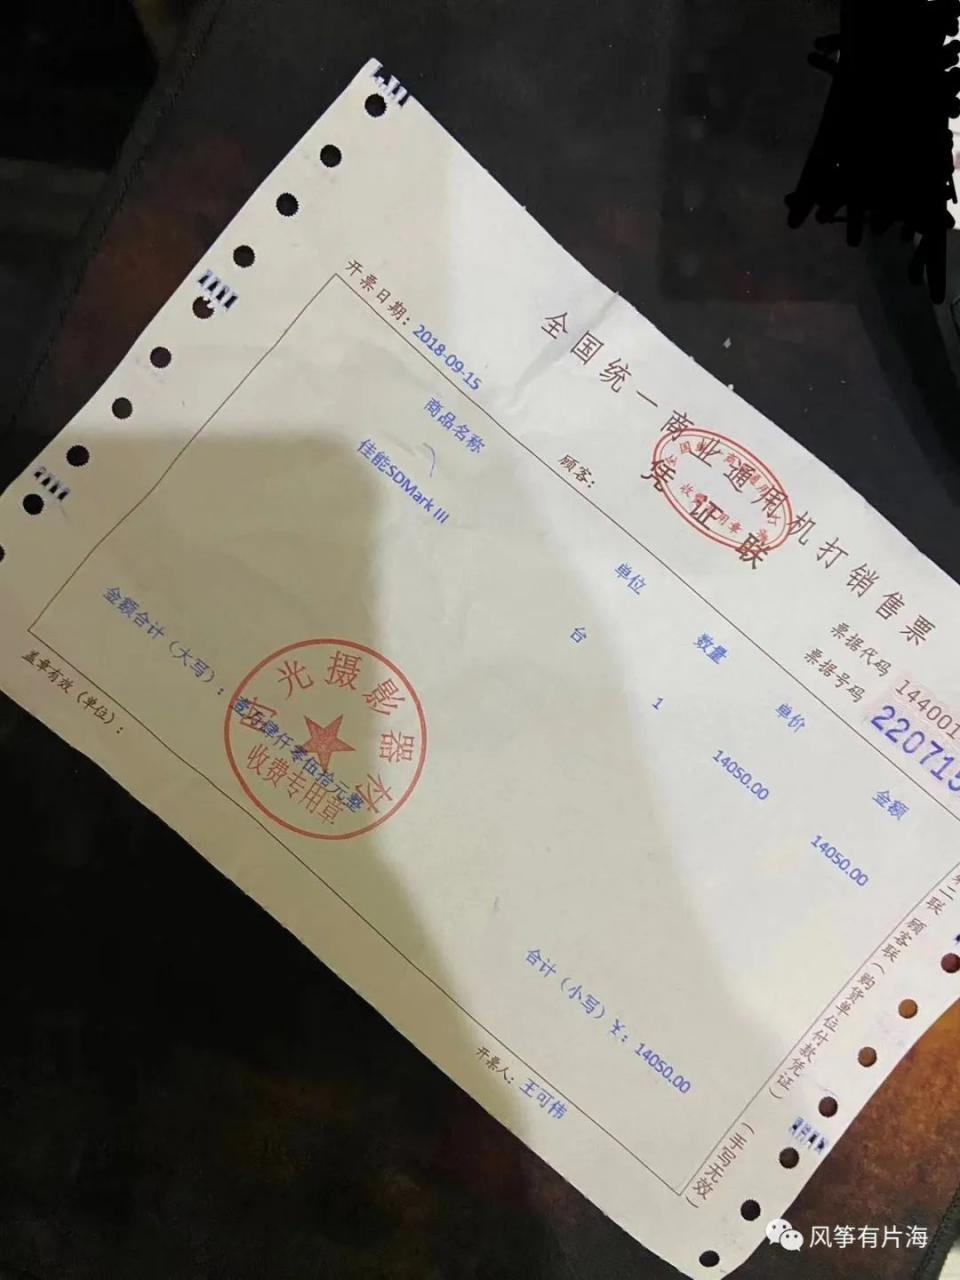 全国统一商业通用机打销售票
凭证联
票据代码 144001
票据号码 220715
开票日期：2018-09-15
顾客：
商品名称 单位 数量 单价 金额
佳能SDMark III 台 1 14050.00 14050.00
金额合计（大写）：壹万肆仟零伍拾元整
合计（小写）¥：14050.00
盖章有效（单位）：
开票人：王可伟
光摄影器材
收费专用章
第二联 顾客联（购货单位付款凭证）
（手写无效）
风筝有片海